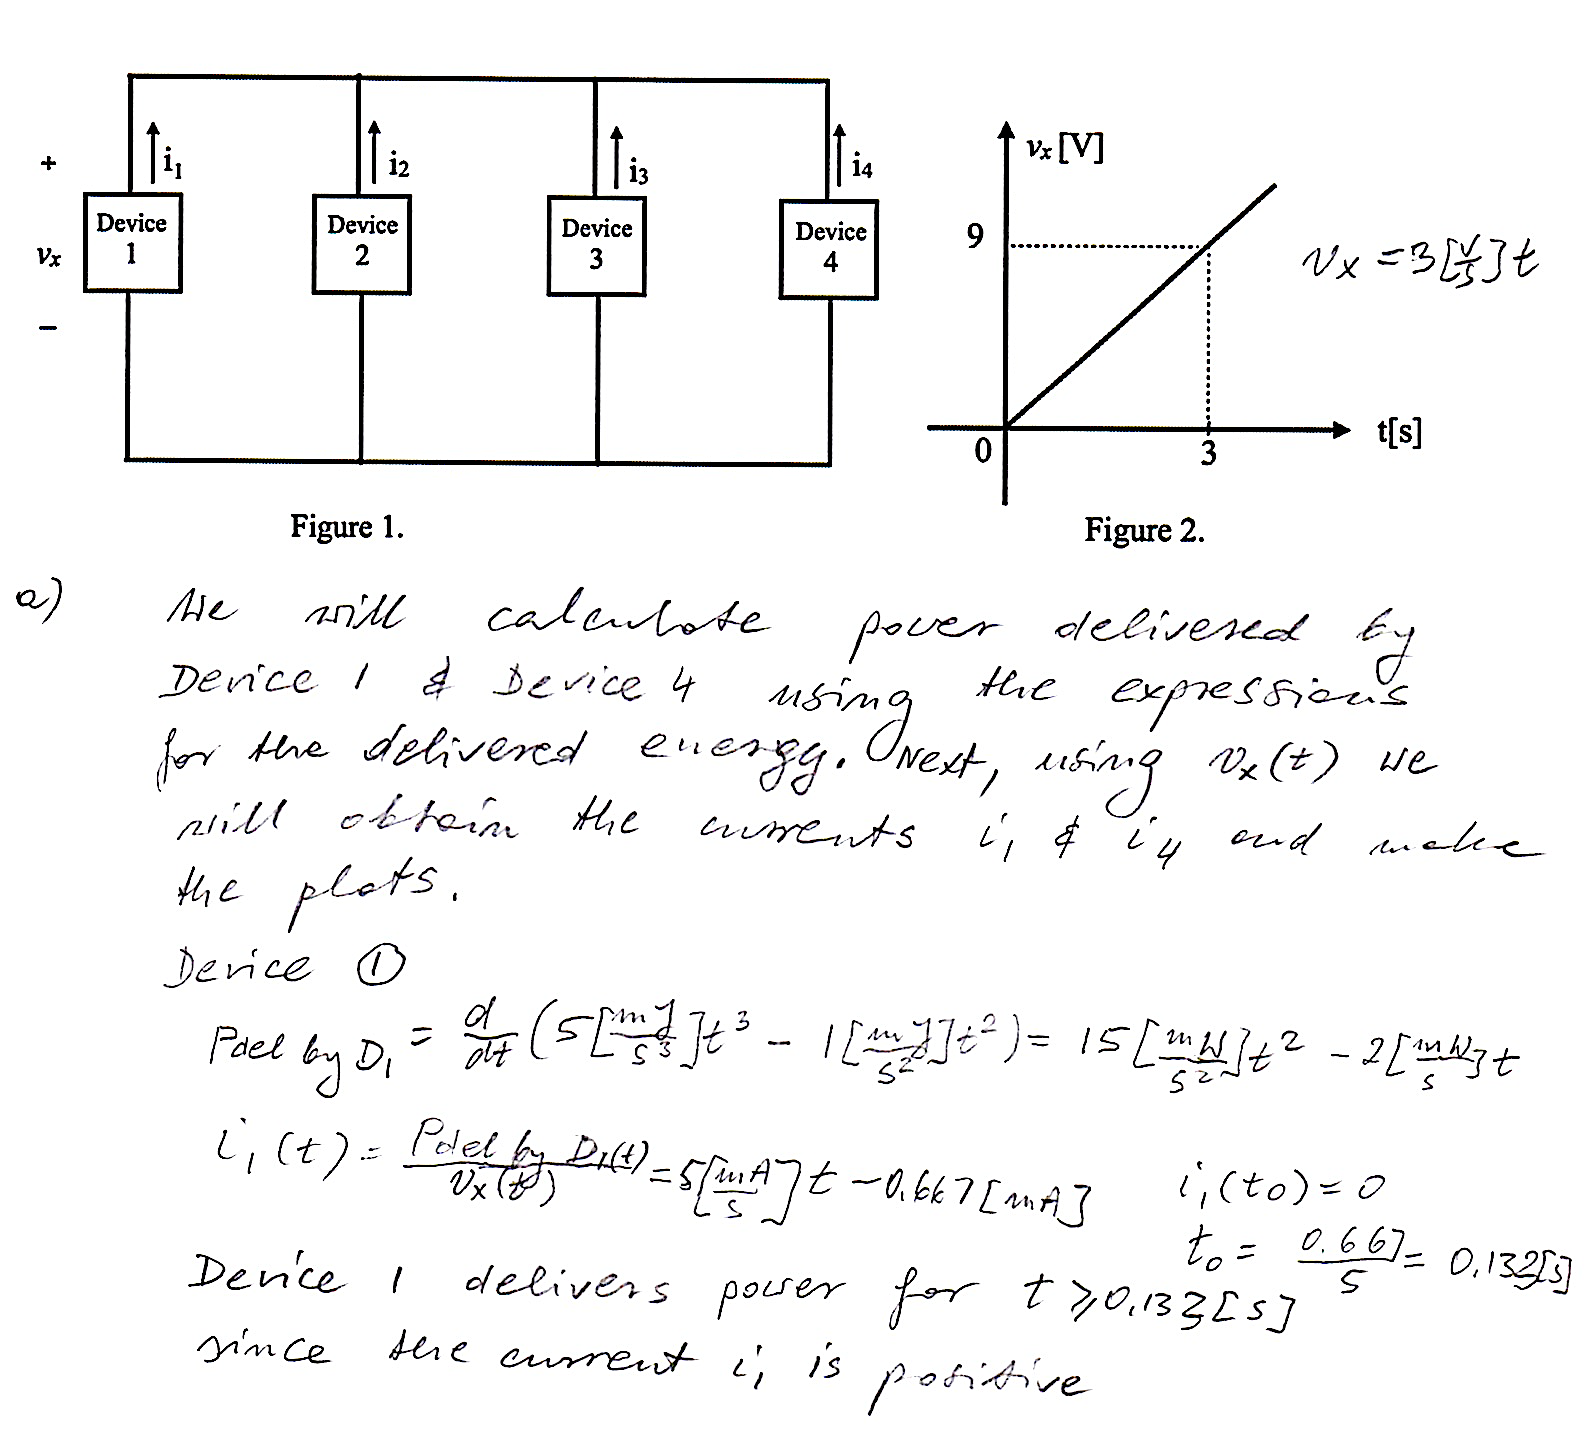 +
vx
–
i1
i2
i3
i4
Device
1
Device
2
Device
3
Device
4
vx [V]
9
0
3
t[s]
vx = 3[V/s]t
Figure 1.
Figure 2.
a) We will calculate power delivered by
Device 1 & Device 4 using the expressions
for the delivered energy. Next, using vx(t) we
will obtain the currents i1 & i4 and make
the plots.
Device ①
Pdel by D1 = d/dt (5[mJ/s³]t³ – 1[mJ/s²]t²) = 15[mW/s²]t² – 2[mW/s]t
i1(t) = Pdel by D1(t)/vx(t) = 5[mA/s]t – 0.667[mA]
i1(t0) = 0
t0 = 0.667/5 = 0.133[s]
Device 1 delivers power for t ⩾ 0.133[s]
since the current i1 is positive